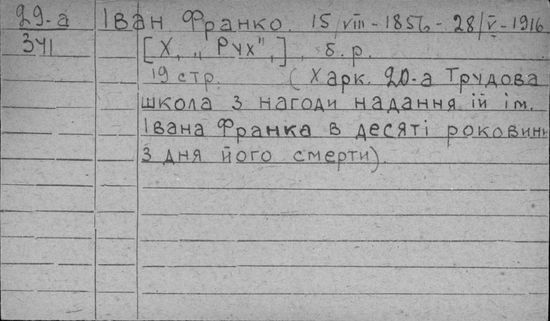 29-а Іван Франко 15/VIII-1856-28/V-1916
341 [Х., „Рух",], б.р.
19 стр. (Харк. 20-а Трудова
школа з нагоди надання їй ім.
Івана Франка в десяті роковини
з дня його смерти).